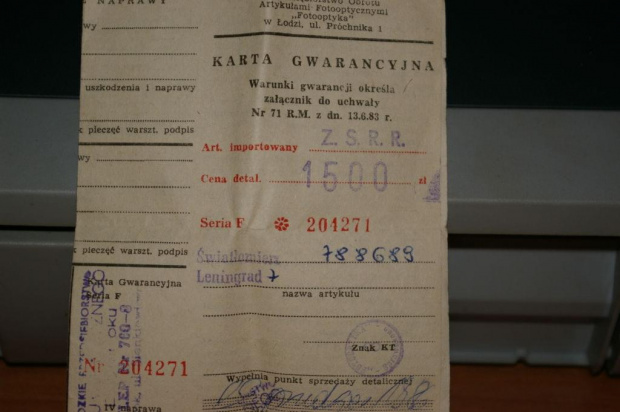 NAPRAWY
Obrotu
Artykułami Fotooptycznymi
"Fotooptyka"
w Łodzi, ul. Próchnika 1
KARTA GWARANCYJNA
Warunki gwarancji określa
załącznik do uchwały
Nr 71 R.M. z dn. 13.6.83 r.
uszkodzenia i naprawy
pieczęć warszt. podpis
Art. importowany Z.S.R.R.
Cena detal. 1500 zł
Seria F 204271
pieczęć warszt. podpis
Światłomierz 788689
Leningrad 7
nazwa artykułu
Karta Gwarancyjna
Seria F
Znak KT
Nr 204271
Wypełnia punkt sprzedaży detalicznej
IV naprawa